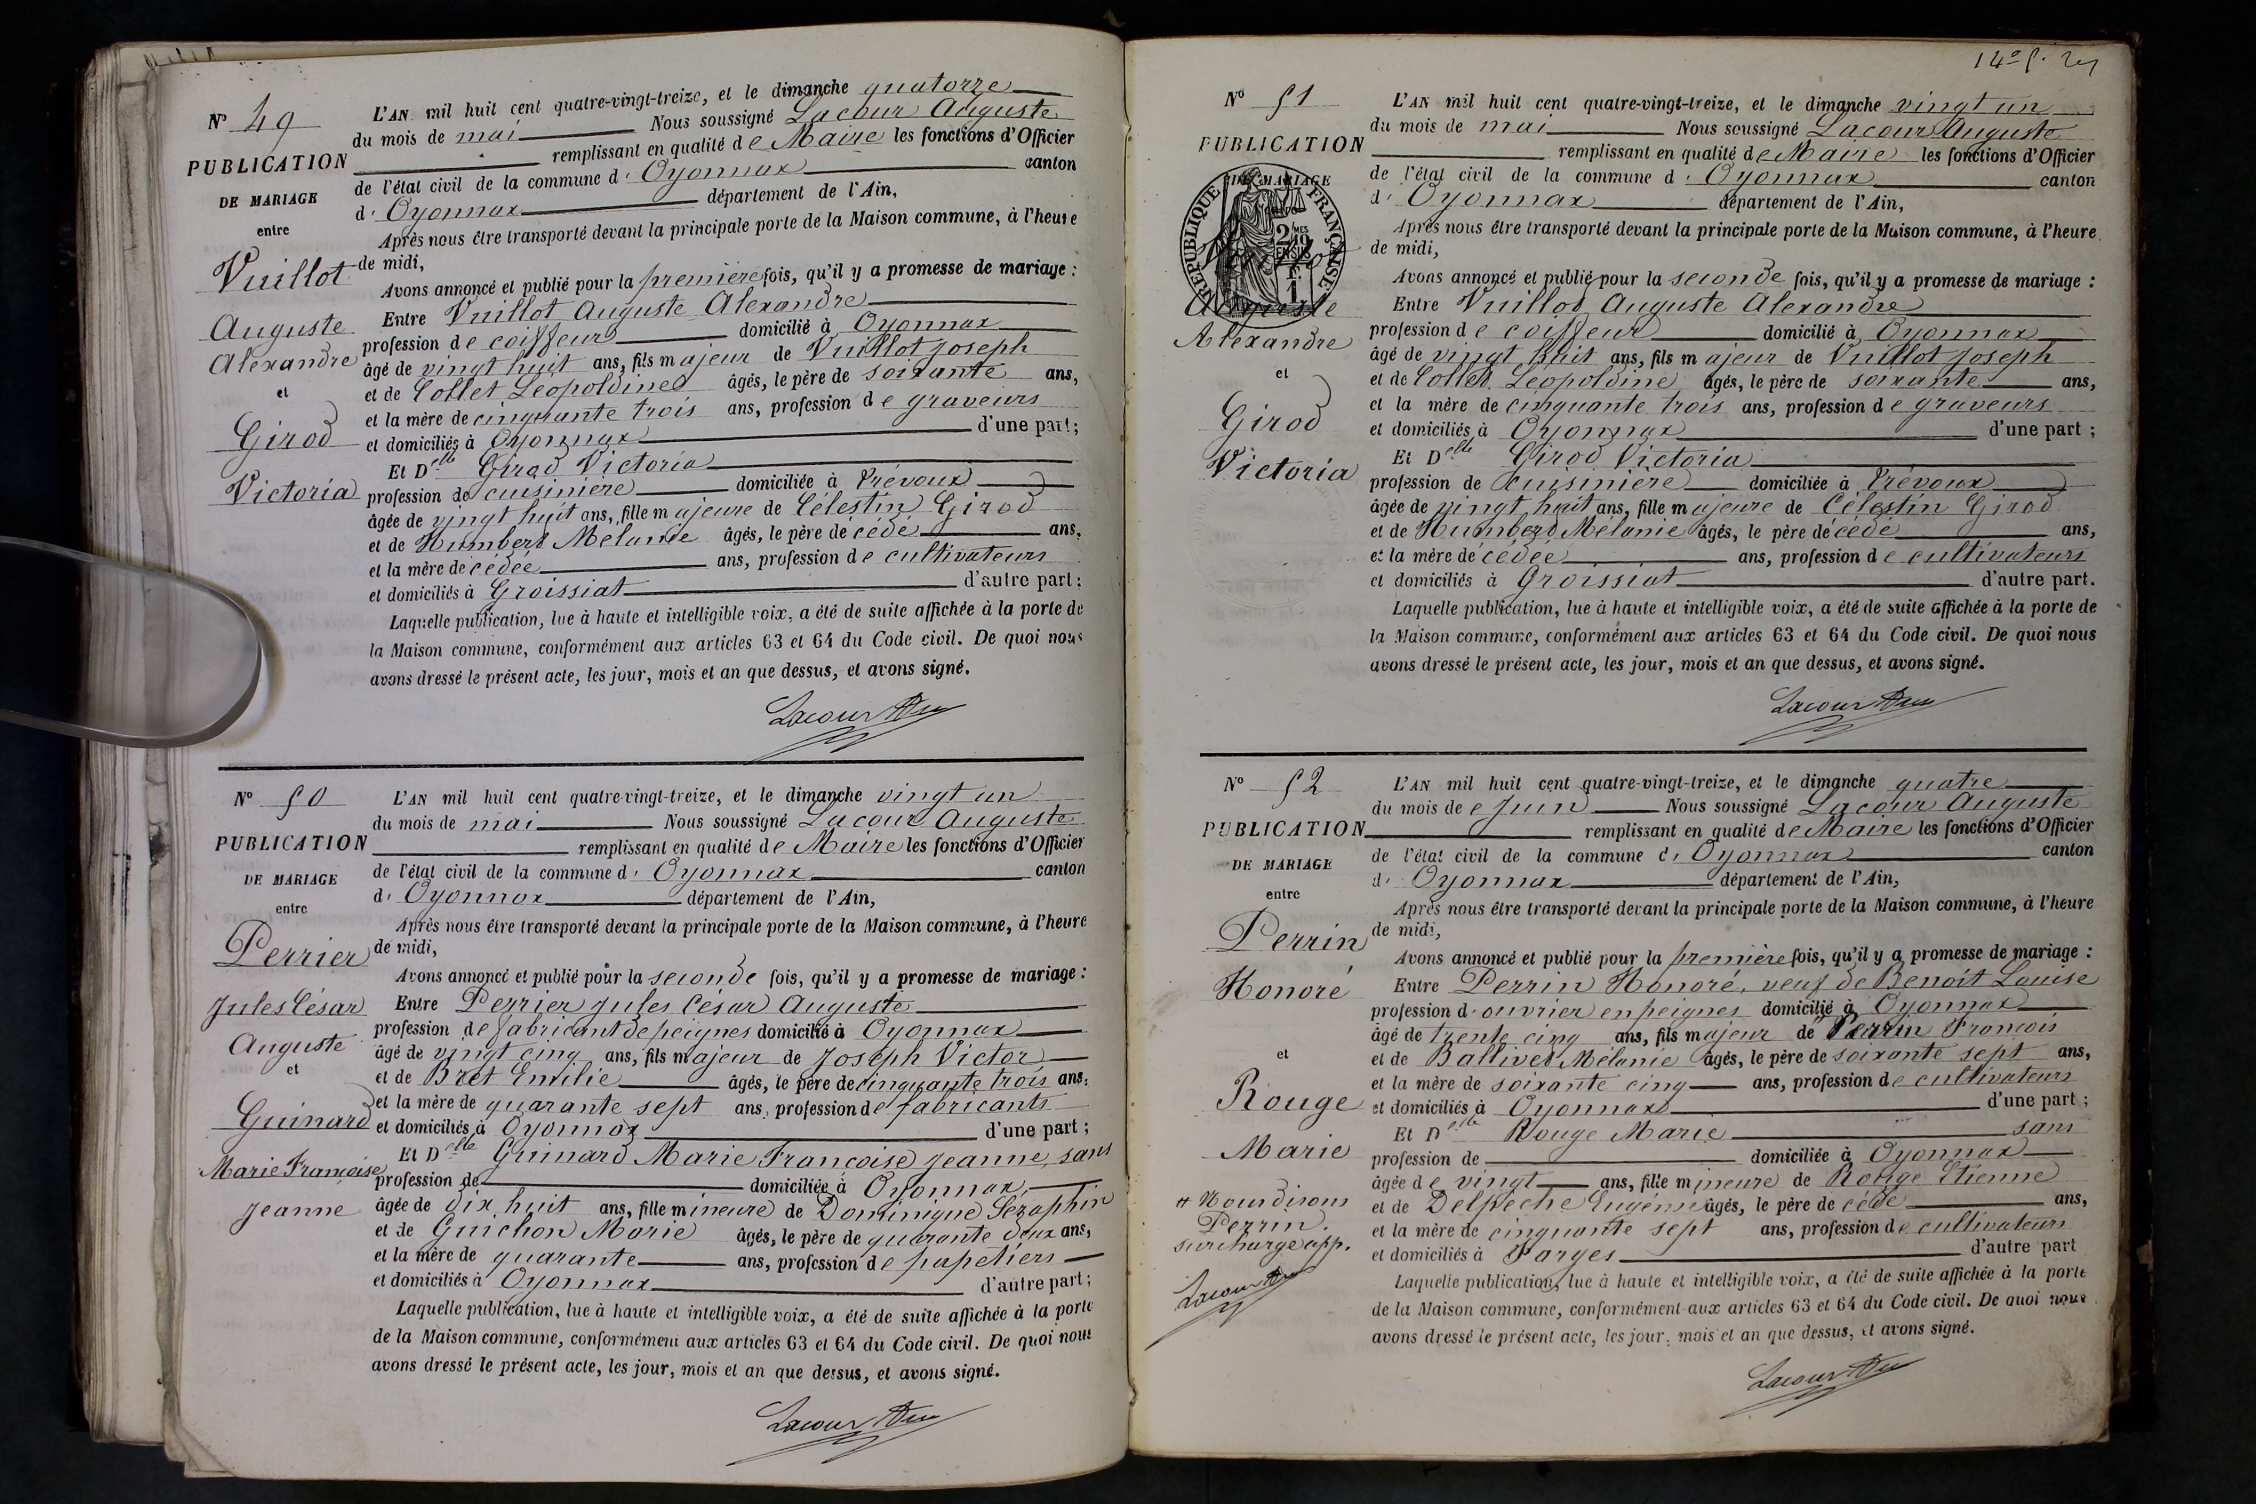 N° 49
PUBLICATION
DE MARIAGE
entre
Vuillot
Auguste
Alexandre
et
Girod
Victoria
L'AN mil huit cent quatre-vingt-treize, et le dimanche quatorze
du mois de mai Nous soussigné Lacour Auguste
remplissant en qualité de Maire les fonctions d'Officier
de l'état civil de la commune d'Oyonnax canton
d'Oyonnax département de l'Ain,
Après nous être transporté devant la principale porte de la Maison commune, à l'heure
de midi,
Avons annoncé et publié pour la première fois, qu'il y a promesse de mariage :
Entre Vuillot Auguste Alexandre
profession de coiffeur domicilié à Oyonnax
âgé de vingt huit ans, fils majeur de Vuillot Joseph
et de Collet Léopoldine âgés, le père de soixante ans,
et la mère de cinquante trois ans, profession de graveurs
et domiciliés à Oyonnax d'une part;
Et Delle Girod Victoria
profession de cuisinière domiciliée à Prévoux
âgée de vingt huit ans, fille majeure de Célestin Girod
et de Humbert Mélanie âgés, le père décédé ans,
et la mère décédée ans, profession de cultivateurs
et domiciliés à Groissiat d'autre part;
Laquelle publication, lue à haute et intelligible voix, a été de suite affichée à la porte de
la Maison commune, conformément aux articles 63 et 64 du Code civil. De quoi nous
avons dressé le présent acte, les jour, mois et an que dessus, et avons signé.
Lacour Aug
N° 50
PUBLICATION
DE MARIAGE
entre
Perrier
Jules César
Auguste
et
Guinard
Marie Françoise
Jeanne
L'AN mil huit cent quatre-vingt-treize, et le dimanche vingt un
du mois de mai Nous soussigné Lacour Auguste
remplissant en qualité de Maire les fonctions d'Officier
de l'état civil de la commune d'Oyonnax canton
d'Oyonnax département de l'Ain,
Après nous être transporté devant la principale porte de la Maison commune, à l'heure
de midi,
Avons annoncé et publié pour la seconde fois, qu'il y a promesse de mariage :
Entre Perrier Jules César Auguste
profession de fabricant de peignes domicilié à Oyonnax
âgé de vingt cinq ans, fils majeur de Joseph Victor
et de Bret Emilie âgés, le père de cinquante trois ans,
et la mère de quarante sept ans, profession de fabricants
et domiciliés à Oyonnax d'une part;
Et Delle Guinard Marie Françoise Jeanne, sans
profession de domiciliée à Oyonnax
âgée de dix huit ans, fille mineure de Dominique Séraphin
et de Guichon Marie âgés, le père de quarante deux ans,
et la mère de quarante ans, profession de papetiers
et domiciliés à Oyonnax d'autre part;
Laquelle publication, lue à haute et intelligible voix, a été de suite affichée à la porte
de la Maison commune, conformément aux articles 63 et 64 du Code civil. De quoi nous
avons dressé le présent acte, les jour, mois et an que dessus, et avons signé.
Lacour Aug
N° 51
PUBLICATION
DE MARIAGE
RÉPUBLIQUE FRANÇAISE
2/10 MES
EN SUS
1 F
Auguste
Alexandre
et
Girod
Victoria
L'AN mil huit cent quatre-vingt-treize, et le dimanche vingt un
du mois de mai Nous soussigné Lacour Auguste
remplissant en qualité de Maire les fonctions d'Officier
de l'état civil de la commune d'Oyonnax canton
d'Oyonnax département de l'Ain,
Après nous être transporté devant la principale porte de la Maison commune, à l'heure
de midi,
Avons annoncé et publié pour la seconde fois, qu'il y a promesse de mariage :
Entre Vuillot Auguste Alexandre
profession de coiffeur domicilié à Oyonnax
âgé de vingt huit ans, fils majeur de Vuillot Joseph
et de Collet Léopoldine âgés, le père de soixante ans,
et la mère de cinquante trois ans, profession de graveurs
et domiciliés à Oyonnax d'une part;
Et Delle Girod Victoria
profession de cuisinière domiciliée à Prévoux
âgée de vingt huit ans, fille majeure de Célestin Girod
et de Humbert Mélanie âgés, le père décédé ans,
et la mère décédée ans, profession de cultivateurs
et domiciliés à Groissiat d'autre part.
Laquelle publication, lue à haute et intelligible voix, a été de suite affichée à la porte de
la Maison commune, conformément aux articles 63 et 64 du Code civil. De quoi nous
avons dressé le présent acte, les jour, mois et an que dessus, et avons signé.
Lacour Aug
N° 52
PUBLICATION
DE MARIAGE
entre
Perrin
Honoré
et
Rouge
Marie
# Nous disons
Perrin.
surcharge app.
Lacour Aug
L'AN mil huit cent quatre-vingt-treize, et le dimanche quatre
du mois de Juin Nous soussigné Lacour Auguste
remplissant en qualité de Maire les fonctions d'Officier
de l'état civil de la commune d'Oyonnax canton
d'Oyonnax département de l'Ain,
Après nous être transporté devant la principale porte de la Maison commune, à l'heure
de midi,
Avons annoncé et publié pour la première fois, qu'il y a promesse de mariage :
Entre Perrin Honoré, veuf de Benoît Louise
profession d'ouvrier en peignes domicilié à Oyonnax
âgé de trente cinq ans, fils majeur de # Perrin François
et de Ballivet Mélanie âgés, le père de soixante sept ans,
et la mère de soixante cinq ans, profession de cultivateurs
et domiciliés à Oyonnax d'une part;
Et Delle Rouge Marie sans
profession de domiciliée à Oyonnax
âgée de vingt ans, fille mineure de Rouge Etienne
et de Delpèche Eugénie âgés, le père décédé ans,
et la mère de cinquante sept ans, profession de cultivateurs
et domiciliés à Farges d'autre part
Laquelle publication, lue à haute et intelligible voix, a été de suite affichée à la porte
de la Maison commune, conformément aux articles 63 et 64 du Code civil. De quoi nous
avons dressé le présent acte, les jour, mois et an que dessus, et avons signé.
Lacour Aug